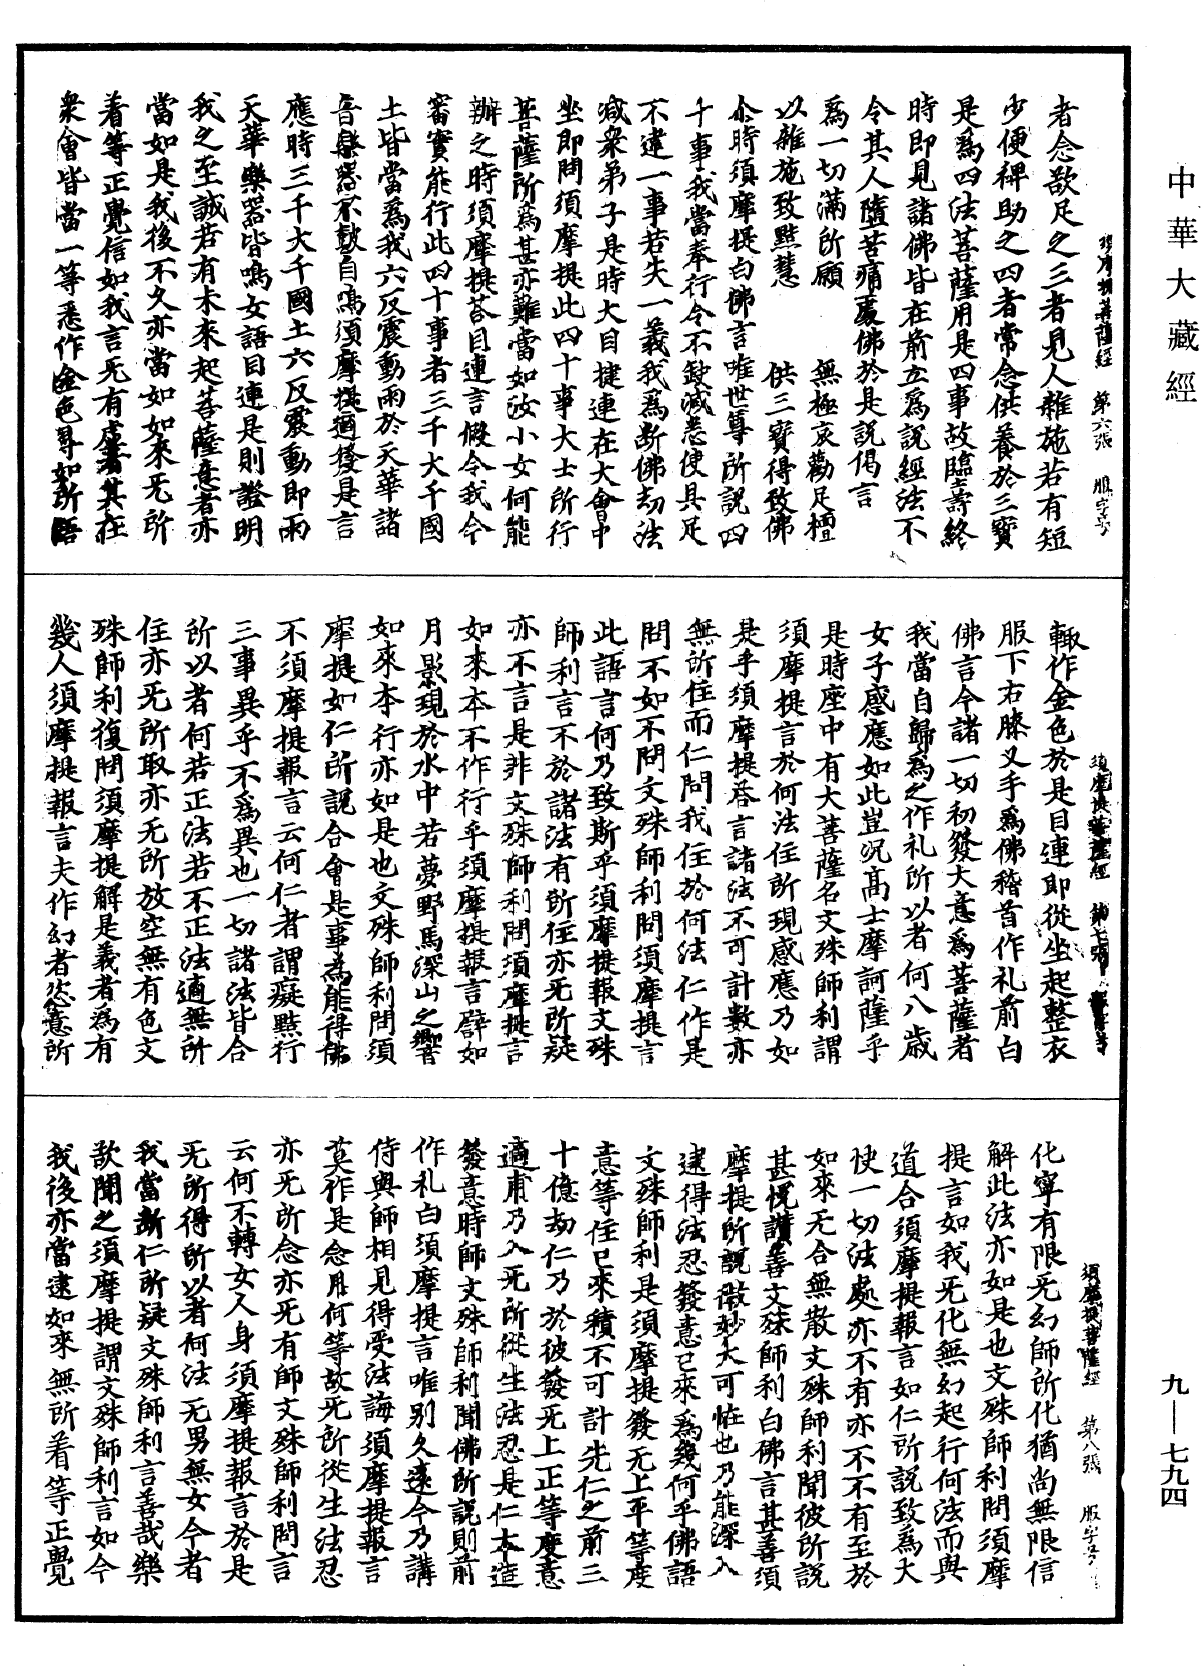 中華大藏經
須摩提菩薩經　第六張　服字号
者念欲足之三者見人雜施若有短
少便裨助之四者常念供養於三寶
是為四法菩薩用是四事故臨壽終
時即見諸佛皆在前立為說經法不
令其人墮苦痛處佛於是說偈言
為一切滿所願　無極哀勸足檀
以雜施致黠慧　供三寶得致佛
尒時須摩提白佛言唯世尊所說四
十事我當奉行令不缺減悉使具足
不違一事若失一義我為斷佛刼法
減衆弟子是時大目揵連在大會中
坐即問須摩提此四十事大士所行
菩薩所為甚亦難當如汝小女何能
辦之時須摩提荅目連言假令我今
審實能行此四十事者三千大千國
土皆當為我六反震動雨於天華諸
音樂器不鼓自鳴須摩提適發是言
應時三千大千國土六反震動即雨
天華樂器皆鳴女語目連是則證明
我之至誠若有未來起菩薩意者亦
當如是我後不久亦當如如來无所
著等正覺信如我言无有虛者其在
衆會皆當一等悉作金色尋如所語
須摩提菩薩經　第七張　服字号
輙作金色於是目連即從坐起整衣
服下右膝叉手為佛稽首作礼前白
佛言今諸一切初發大意為菩薩者
我當自歸為之作礼所以者何八歲
女子感應如此豈況高士摩訶薩乎
是時座中有大菩薩名文殊師利謂
須摩提言於何法住所現感應乃如
是乎須摩提荅言諸法不可計數亦
無所住而仁問我住於何法仁作是
問不如不問文殊師利問須摩提言
此語言何乃致斯乎須摩提報文殊
師利言不於諸法有所住亦无所疑
亦不言是非文殊師利問須摩提言
如來本不作行乎須摩提報言譬如
月影現於水中若夢野馬深山之嚮
如來本行亦如是也文殊師利問須
摩提如仁所說合會是事為能得佛
不須摩提報言云何仁者謂癡黠行
三事異乎不為異也一切諸法皆合
所以者何若正法若不正法適無所
住亦无所取亦无所放空無有色文
殊師利復問須摩提解是義者為有
幾人須摩提報言夫作幻者恣意所
須摩提菩薩經　第八張　服字号
化寧有限无幻師所化猶尚無限信
解此法亦如是也文殊師利問須摩
提言如我无化無幻起行何法而與
道合須摩提報言如仁所說致為大
快一切法處亦不有亦不不有至於
如來无合無散文殊師利聞彼所說
甚悅讚善文殊師利白佛言甚善須
摩提所說微妙大可恠也乃能深入
逮得法忍發意已來為幾何乎佛語
文殊師利是須摩提發无上平等度
意等住已來積不可計先仁之前三
十億劫仁乃於彼發无上正等度意
適甫乃入无所從生法忍是仁本造
發意時師文殊師利聞佛所說則前
作礼白須摩提言唯別久遠今乃講
侍與師相見得受法誨須摩提報言
莫作是念用何等故无所從生法忍
亦无所念亦无有師文殊師利問言
云何不轉女人身須摩提報言於是
无所得所以者何法无男無女今者
我當斷仁所疑文殊師利言善哉樂
欲聞之須摩提謂文殊師利言如今
我後亦當逮如來無所着等正覺
九—七九四